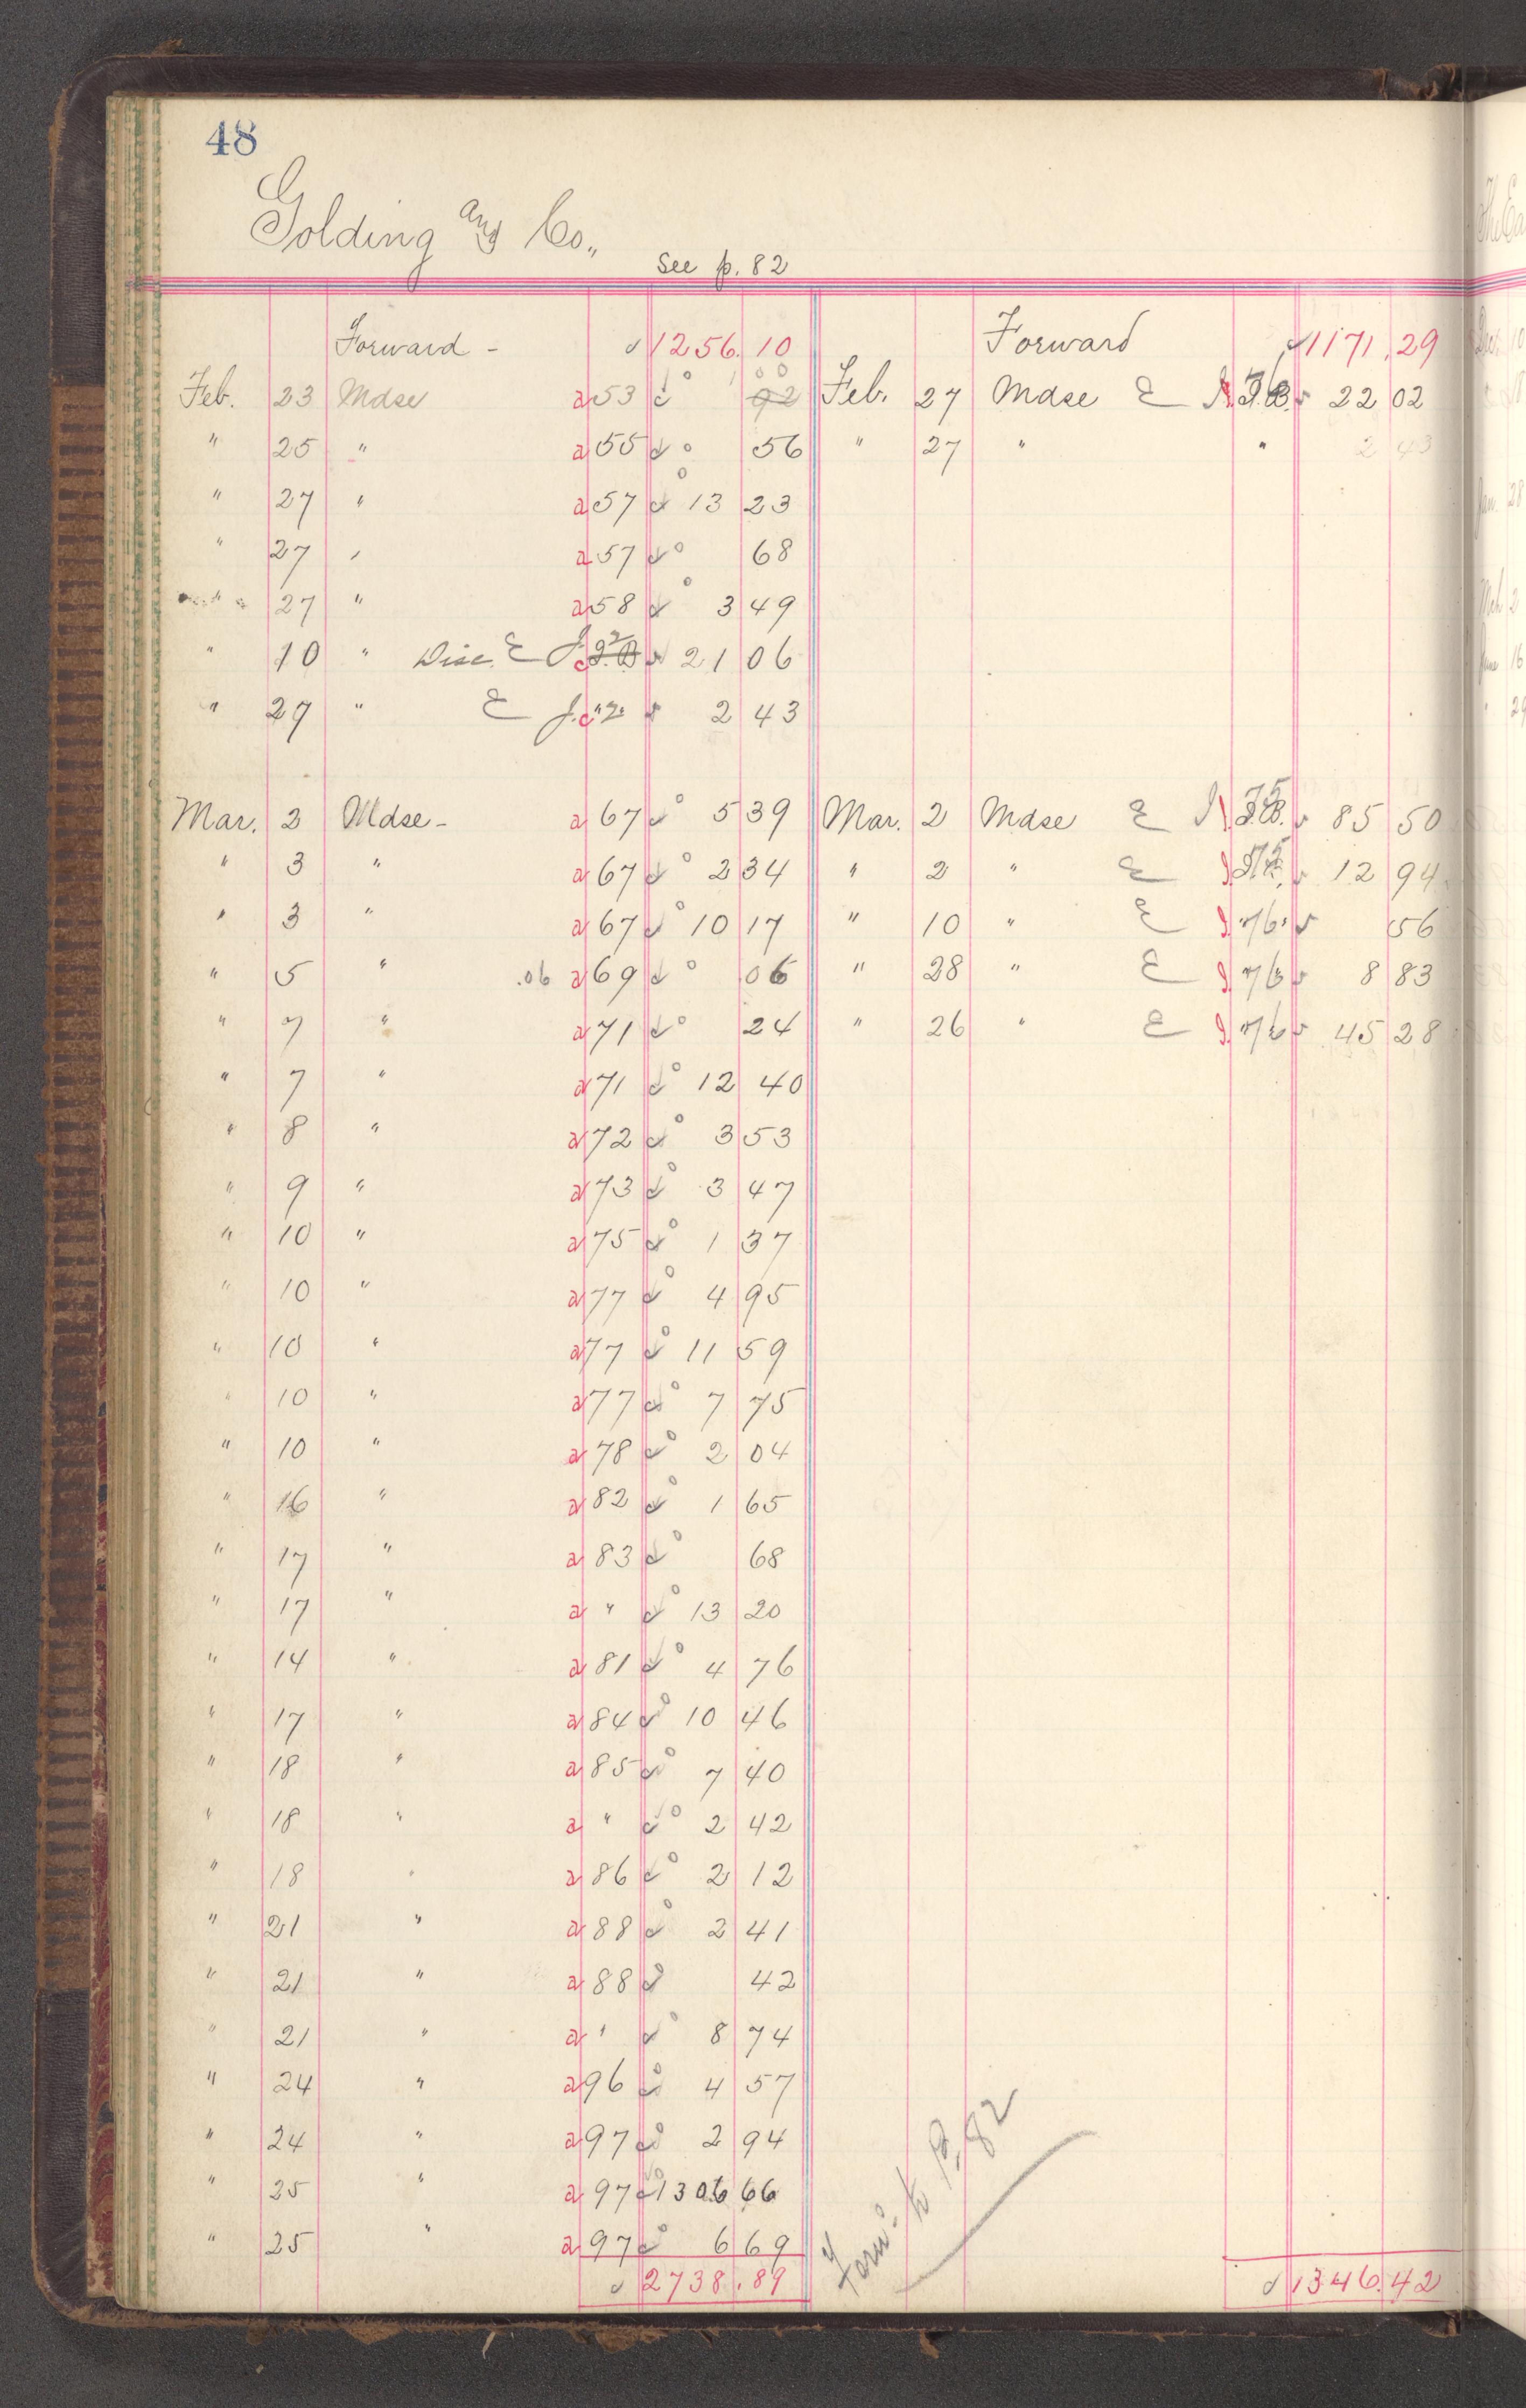 48
Golding and Co.,
See p. 82
Forward - 1256.10 Forward 1171.29
Feb. 23 Mdse a 53 1 00 Feb. 27 Mdse E J. 76 22 02
" 25 " a 55 56 " 27 " " 2 43
" 27 " a 57 13 23
" 27 " a 57 68
" 27 " a 58 3 49
" 10 " Disc. E J. c 2 21 06
" 27 " E J. c "2" 2 43
Mar. 2 Mdse - a 67 5 39 Mar. 2 Mdse E J. 75 85 50
" 3 " a 67 2 34 " 2 " E J. 75 12 94
" 3 " a 67 10 17 " 10 " E J. 76 56
" 5 " .06 a 69 06 " 28 " E J. 76 8 83
" 7 " a 71 24 " 26 " E J. 76 45 28
" 7 " a 71 12 40
" 8 " a 72 3 53
" 9 " a 73 3 47
" 10 " a 75 1 37
" 10 " a 77 4 95
" 10 " a 77 11 59
" 10 " a 77 7 75
" 10 " a 78 2 04
" 16 " a 82 1 65
" 17 " a 83 68
" 17 " a " 13 20
" 14 " a 81 4 76
" 17 " a 84 10 46
" 18 " a 85 7 40
" 18 " a " 2 42
" 18 " a 86 2 12
" 21 " a 88 2 41
" 21 " a 88 42
" 21 " a " 8 74
" 24 " a 96 4 57
" 24 " a 97 2 94
" 25 " a 97 1306 66
" 25 " a 97 6 69
2738.89 1346.42
Forw. to P. 82